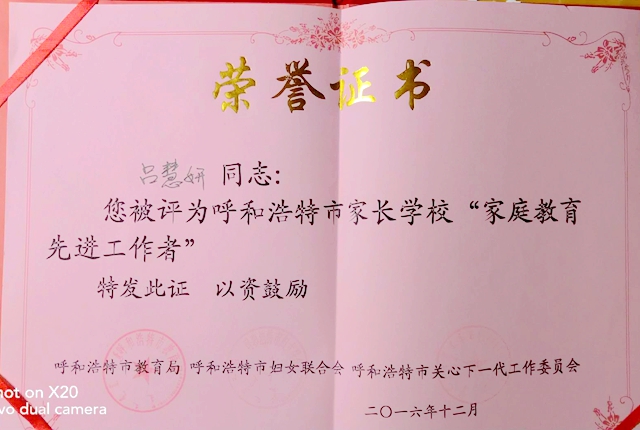 荣誉证书
吕慧妍 同志:
您被评为呼和浩特市家长学校“家庭教育
先进工作者”
特发此证 以资鼓励
呼和浩特市教育局 呼和浩特市妇女联合会 呼和浩特市关心下一代工作委员会
二〇一六年十二月
hot on X20
vo dual camera